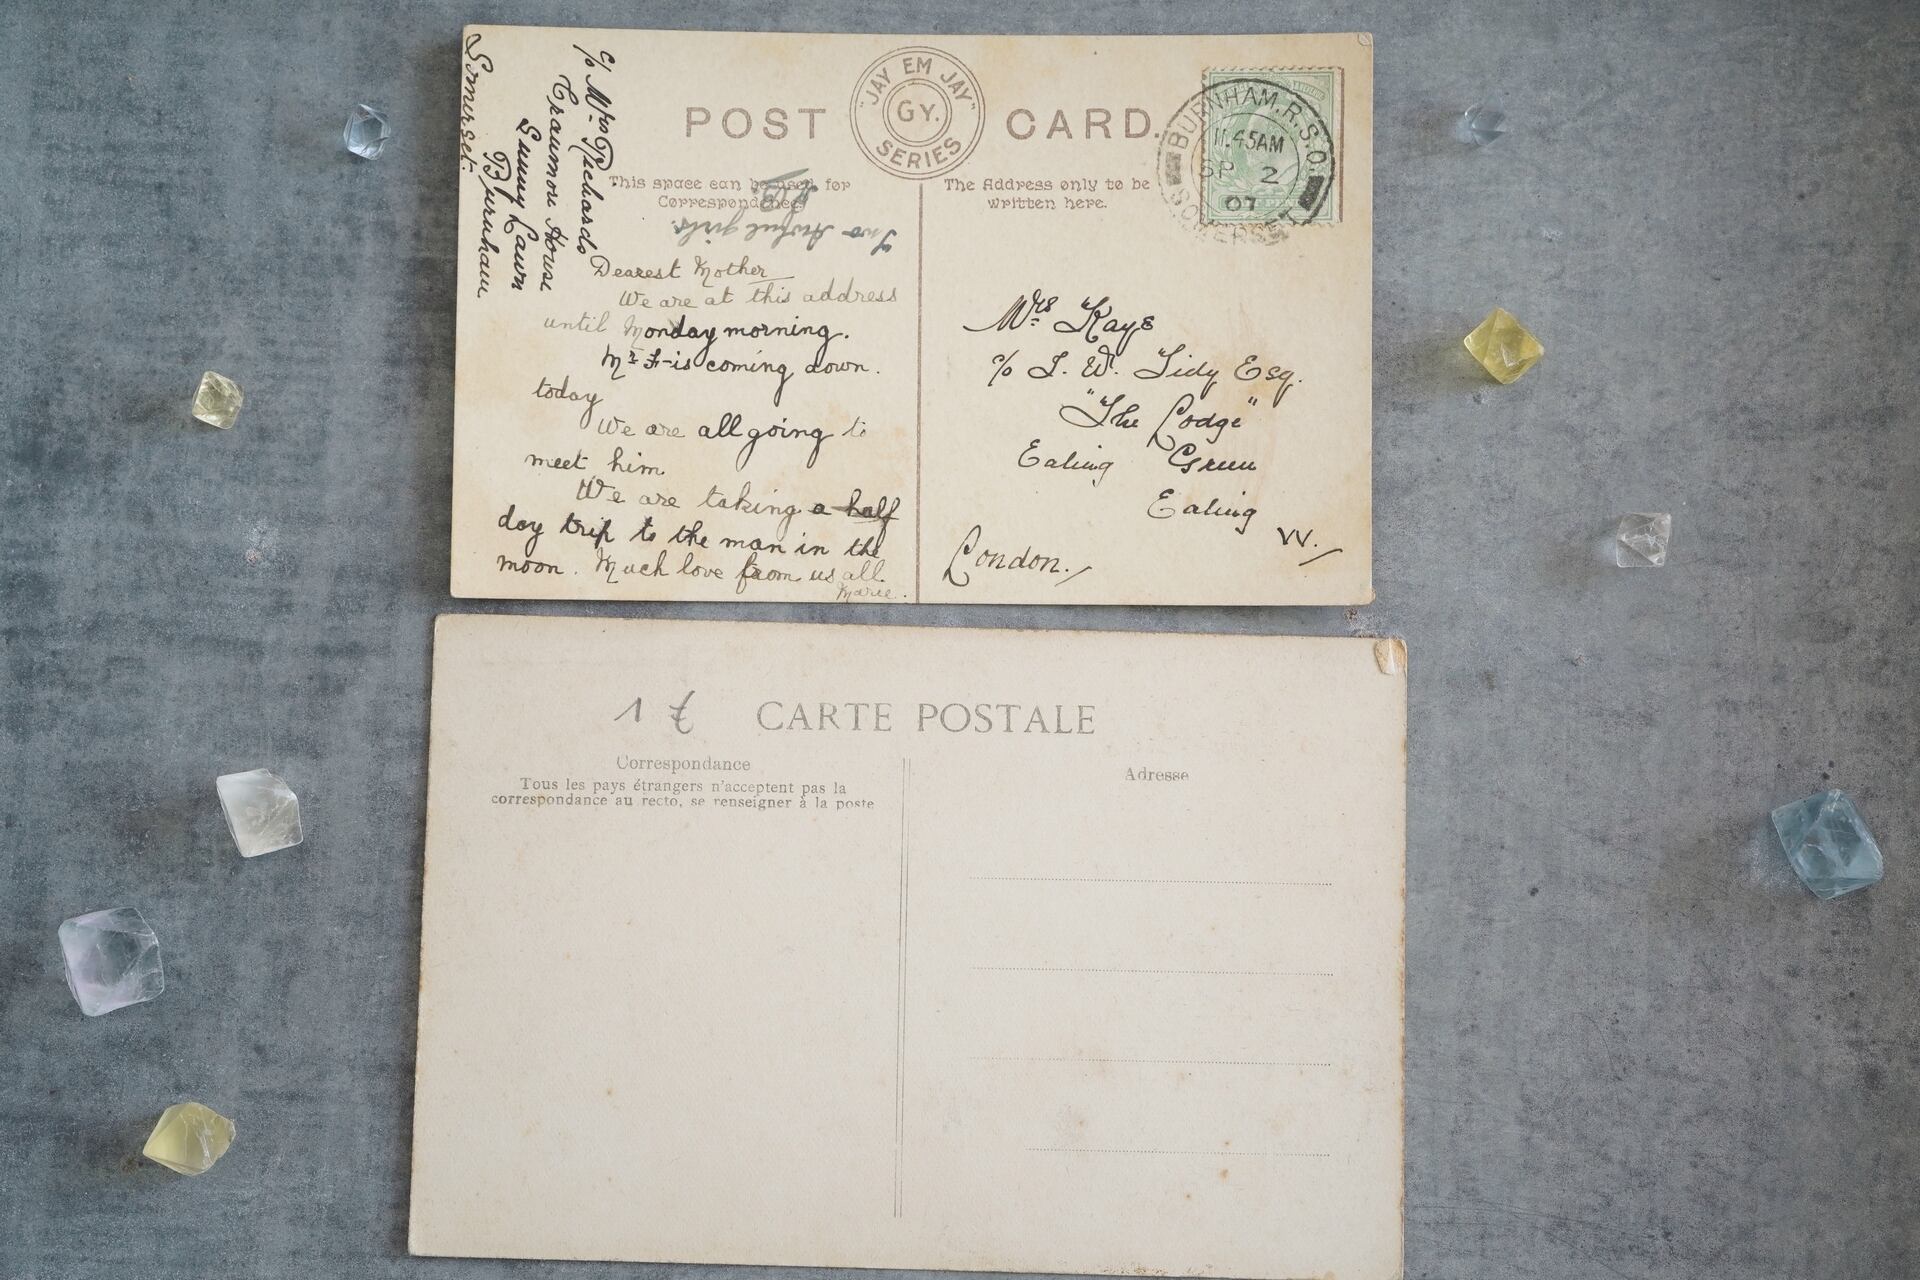 POST CARD.
"JAY EM JAY"
GY.
SERIES
This space can be used for
Correspondence
The Address only to be
written here.
BURNHAM. R.S.O.
11.45AM
SP 2
07
SOMERSET
c/o Mrs Richards
House
Sunny Lawn
Burnham
Somerset.
Two girls.
Dearest Mother
We are at this address
until Monday morning.
Mr F- is coming down.
today
We are all going to
meet him
We are taking a half
day trip to the man in the
moon. Much love from us all.
Marie.
Mrs Kaye
c/o T. W. Tidy Esq.
"The Lodge"
Ealing Green
Ealing
W.
London.
1 £
CARTE POSTALE
Correspondance
Tous les pays étrangers n'acceptent pas la
correspondance au recto, se renseigner à la poste
Adresse